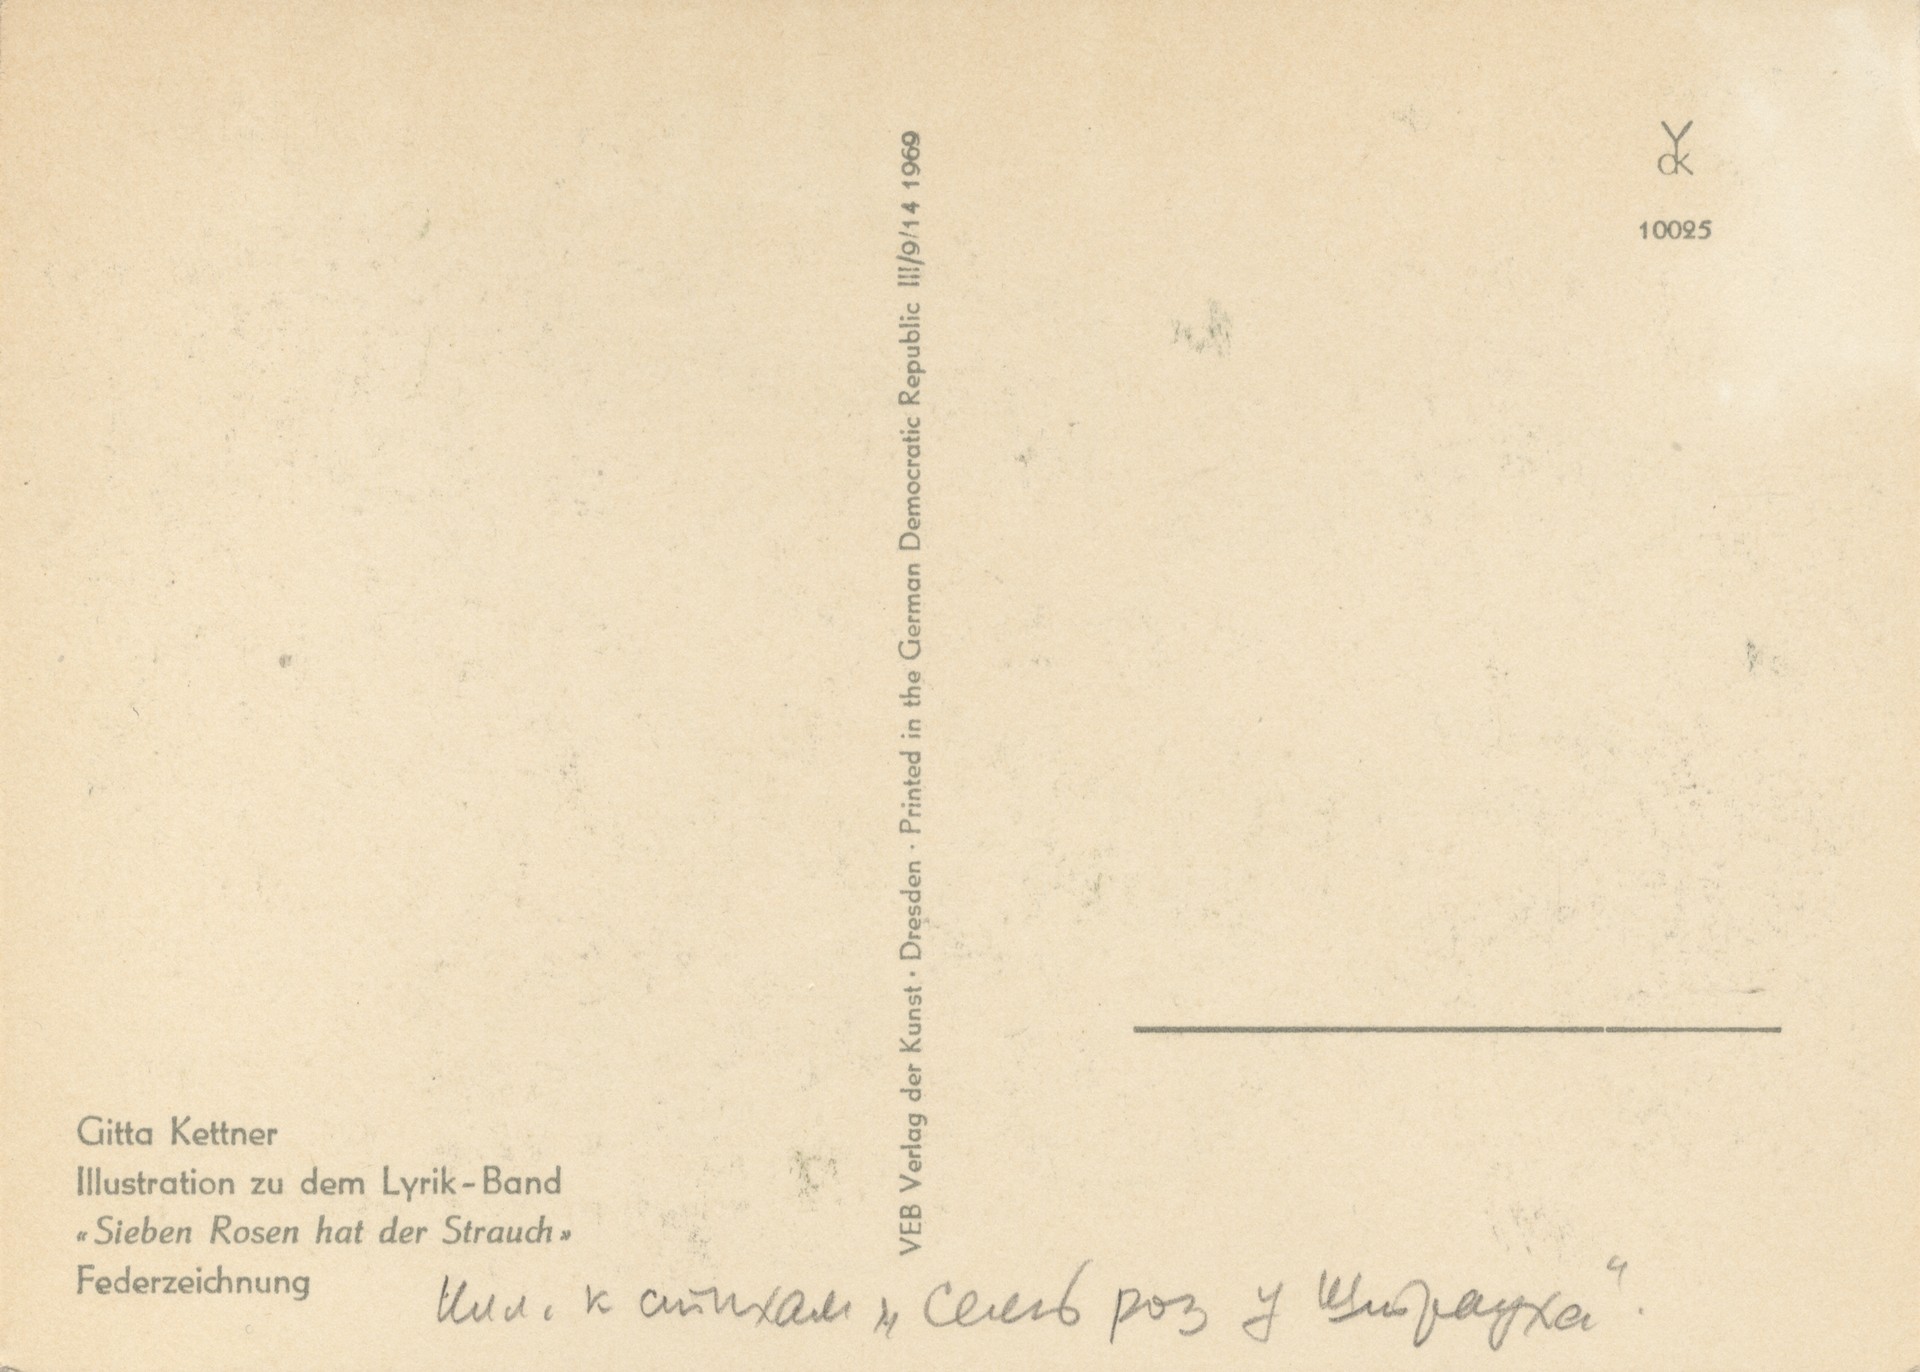 Gitta Kettner
Illustration zu dem Lyrik-Band
«Sieben Rosen hat der Strauch»
Federzeichnung
VEB Verlag der Kunst · Dresden · Printed in the German Democratic Republic III/9/14 1969
VdK
10025
Илл. к стихам „Семь роз у Штрауха“.